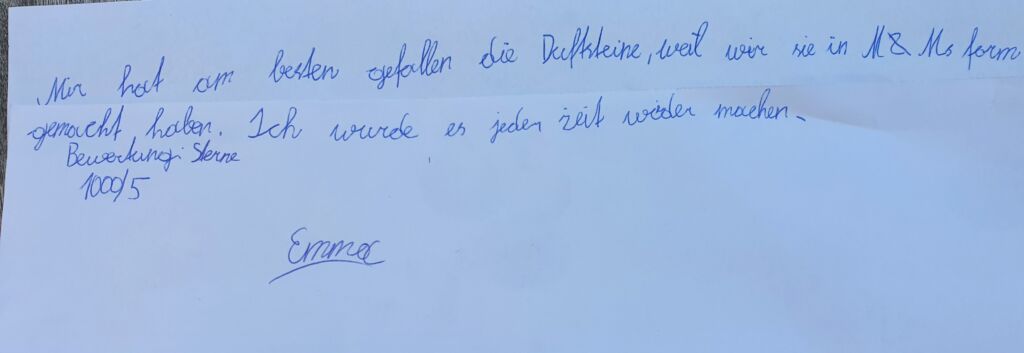 Mir hat am besten gefallen die Duftsteine, weil wir sie in M&Ms form
gemacht haben. Ich wurde es jeden zeit wieder machen.
Bewertung: Sterne
1000/5
Emma